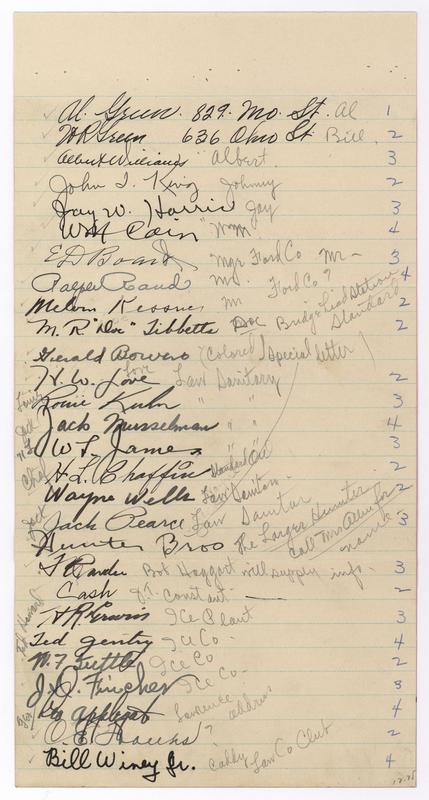 Al. Green. 829. Mo. St. Al 1
H R Green 636 Ohio St. Bill. 2
Albert Williams "Albert. 3
John I. King Johnny 2
Jay W. Harris Jay 3
WM Cain "Wm. 4
E D Board Mgr Ford Co Mr- 3
Mr. Ford Co? 4
Melvin Mr 2
M. R "Doc" Tibbetts Doc Bridge St Standard 2
Gerald Bowers (Colored) Special letter
H. W. Love Law Sanitary 2
Louie Kuhn " " 3
Jack Musselman " " 4
W F James 3
H L Chaffin Standard Oil 2
Wayne Wells Law Sanitary 2
Jack Pearce Law Sanitary 3
Hunter Bros The Larger Hunter Call Mrs for name
Bob Haggart will supply info. 3
Cash constant 2
H R Erwin Ice Plant 3
Ted Gentry Ice Co. 4
W. F Tuttle Ice Co 2
J. O. Fincher Ice Co. 3
Applegat Lawrence address 4
O. E. ? 2
Bill Winey Jr. Caddy Law Co Club 4
12.25